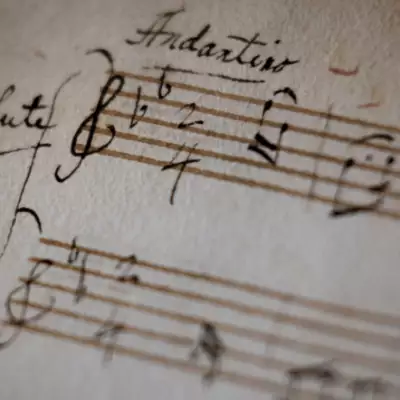 Andantino
lute
2
4
2
4